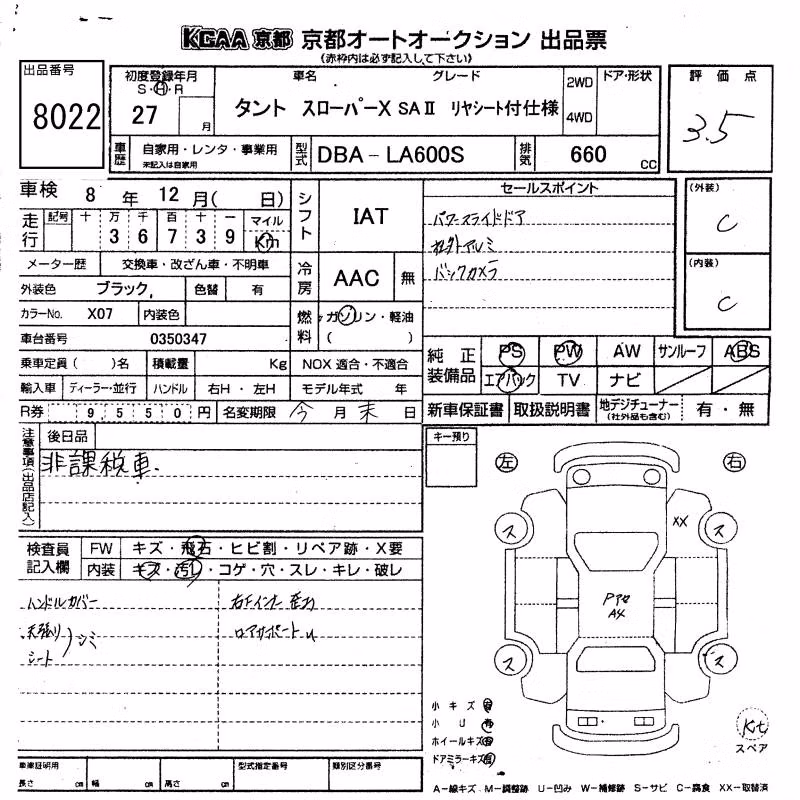 KCAA 京都 京都オートオークション 出品票
(赤枠内は必ず記入して下さい)
出品番号
8022
初度登録年月
S・H・R
27
月
車名
グレード
タント スローパーX SAⅡ リヤシート付仕様
2WD
4WD
ドア・形状
評価点
3.5
車歴
自家用・レンタ・事業用
未記入は自家用
型式
DBA-LA600S
排気
660
cc
車検 8 年 12 月( 日)
走行
記号 十 万 千 百 十 一
3 6 7 3 9
マイル
Km
メーター歴
交換車・改ざん車・不明車
外装色
ブラック,
色替
有
カラーNo.
X07
内装色
車台番号
0350347
シフト
IAT
冷房
AAC
無
燃料
ガソリン・軽油
( )
セールスポイント
パワースライドドア
社外アルミ
バックカメラ
(外装)
C
(内装)
C
乗車定員( )名
積載量
Kg
NOX 適合・不適合
輸入車
ディーラー・並行
ハンドル
右H・左H
モデル年式 年
R券
9,550円
名変期限
今 月 末 日
純正装備品
PS
PW
AW
サンルーフ
ABS
エアバック
TV
ナビ
新車保証書
取扱説明書
地デジチューナー
(社外品も含む)
有・無
注意事項(出品店記入)
後日品
非課税車.
キー預り
左
右
検査員記入欄
FW
キズ・飛石・ヒビ割・リペア跡・X要
内装
キズ・汚れ・コゲ・穴・スレ・キレ・破レ
ハンドルカバー
天張り
シート
シミ
右Fインナー
ロアサポートu
ス
ス
ス
ス
XX
A4
小キズ
小U
ホイールキズ
ドアミラーキズ
Kit
スペア
車庫証明用
長さ cm
幅 cm
高さ cm
型式指定番号
類別区分番号
A-線キズ M-調整跡 U-凹み W-補修跡 S-サビ C-腐食 XX-取替済